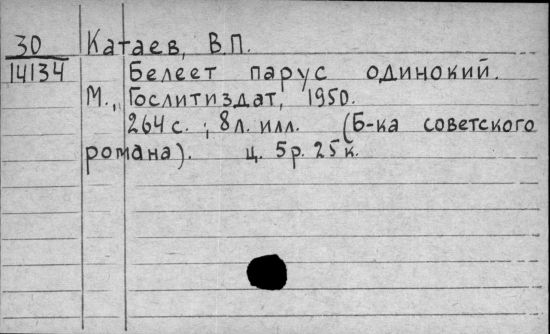 30 Катаев, В.П.
14134 Белеет парус одинокий.
М., Гослитиздат, 1950.
264 с. ; 8 л. илл. (Б-ка советского
романа). ц. 5 р. 25 к.